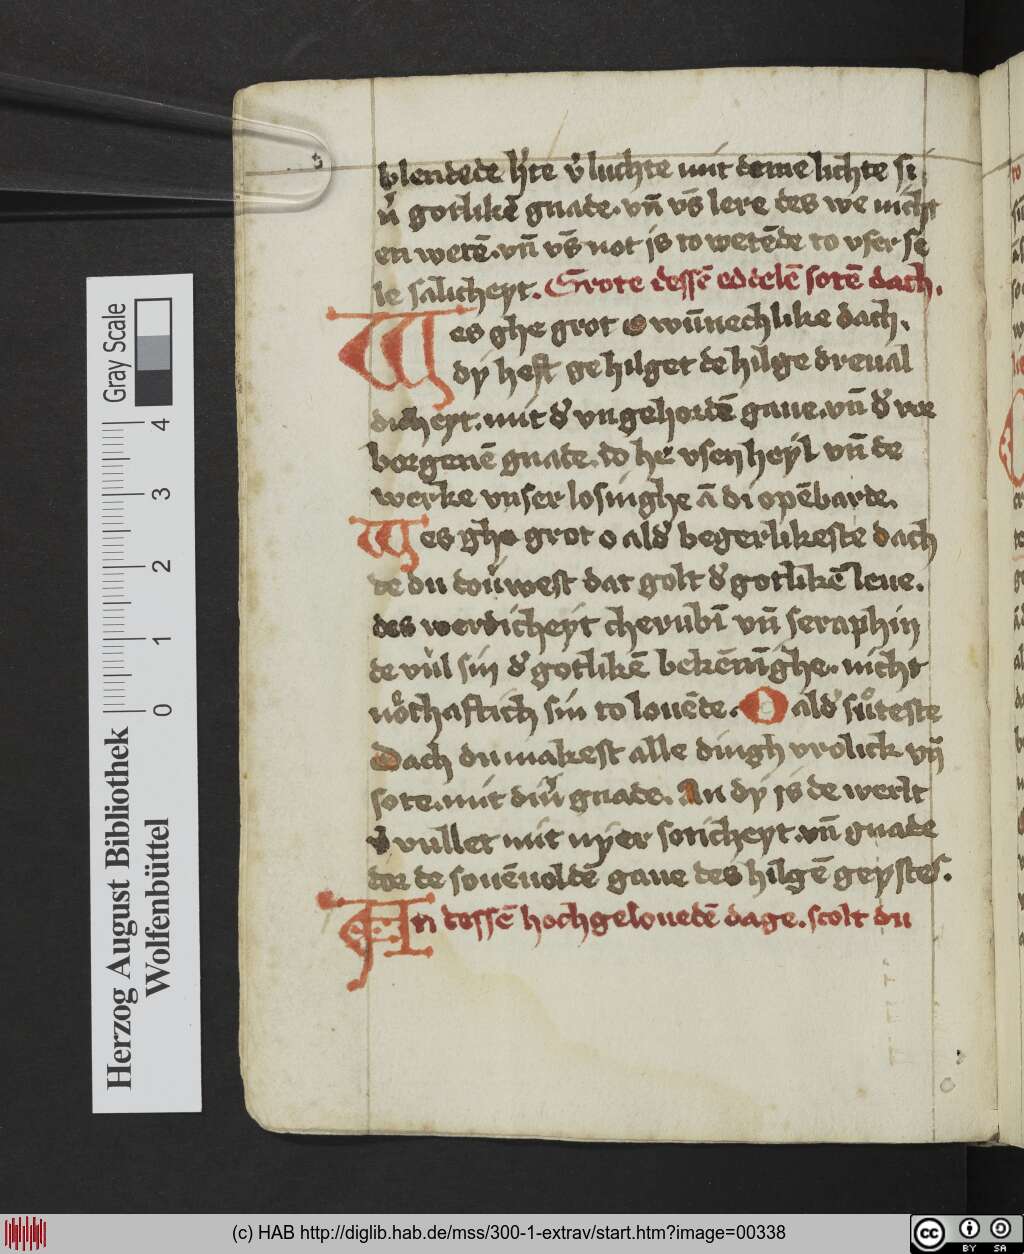 blendede h'te v'luchte mit deme lichte si
n' gotlikē gnade. vn̄ vs̄ lere des we nicht
en wetē. vn̄ vs̄ not is to wetēde to vser se
le sälicheyt. Grote dessē eddelē sotē dach.
Wes ghe grot o wūnechlike dach.
dy heft ge hilget de hilge dreual
dicheyt. mit d' vngehordē gaue. vn̄ d' vor
borgenē gnade. do he vsen heyl vn̄ de
werke vnser losinghe ā di opēbarde.
Wes ghe grot o ald' begerlikeste dach
de du vort golt d' gotlikē leue.
des werdicheyt cherubī vn̄ seraphin
de vul sin d' gotlikē bekēnīghe. nicht
nochaftich sin to louēde. O ald' suͦteste
Dach du makest alle dingh vrolick vn̄
sote. mit din' gnade. An dy is de werlt
v' vullet mit nyer soticheyt vn̄ gnade
dor de souēuoldē gaue des hilgē geystes.
An dessē hochgelouedē dage. scolt du
Gray Scale
4
3
2
1
0
Herzog August Bibliothek
Wolfenbüttel
(c) HAB http://diglib.hab.de/mss/300-1-extrav/start.htm?image=00338
cc
BY SA